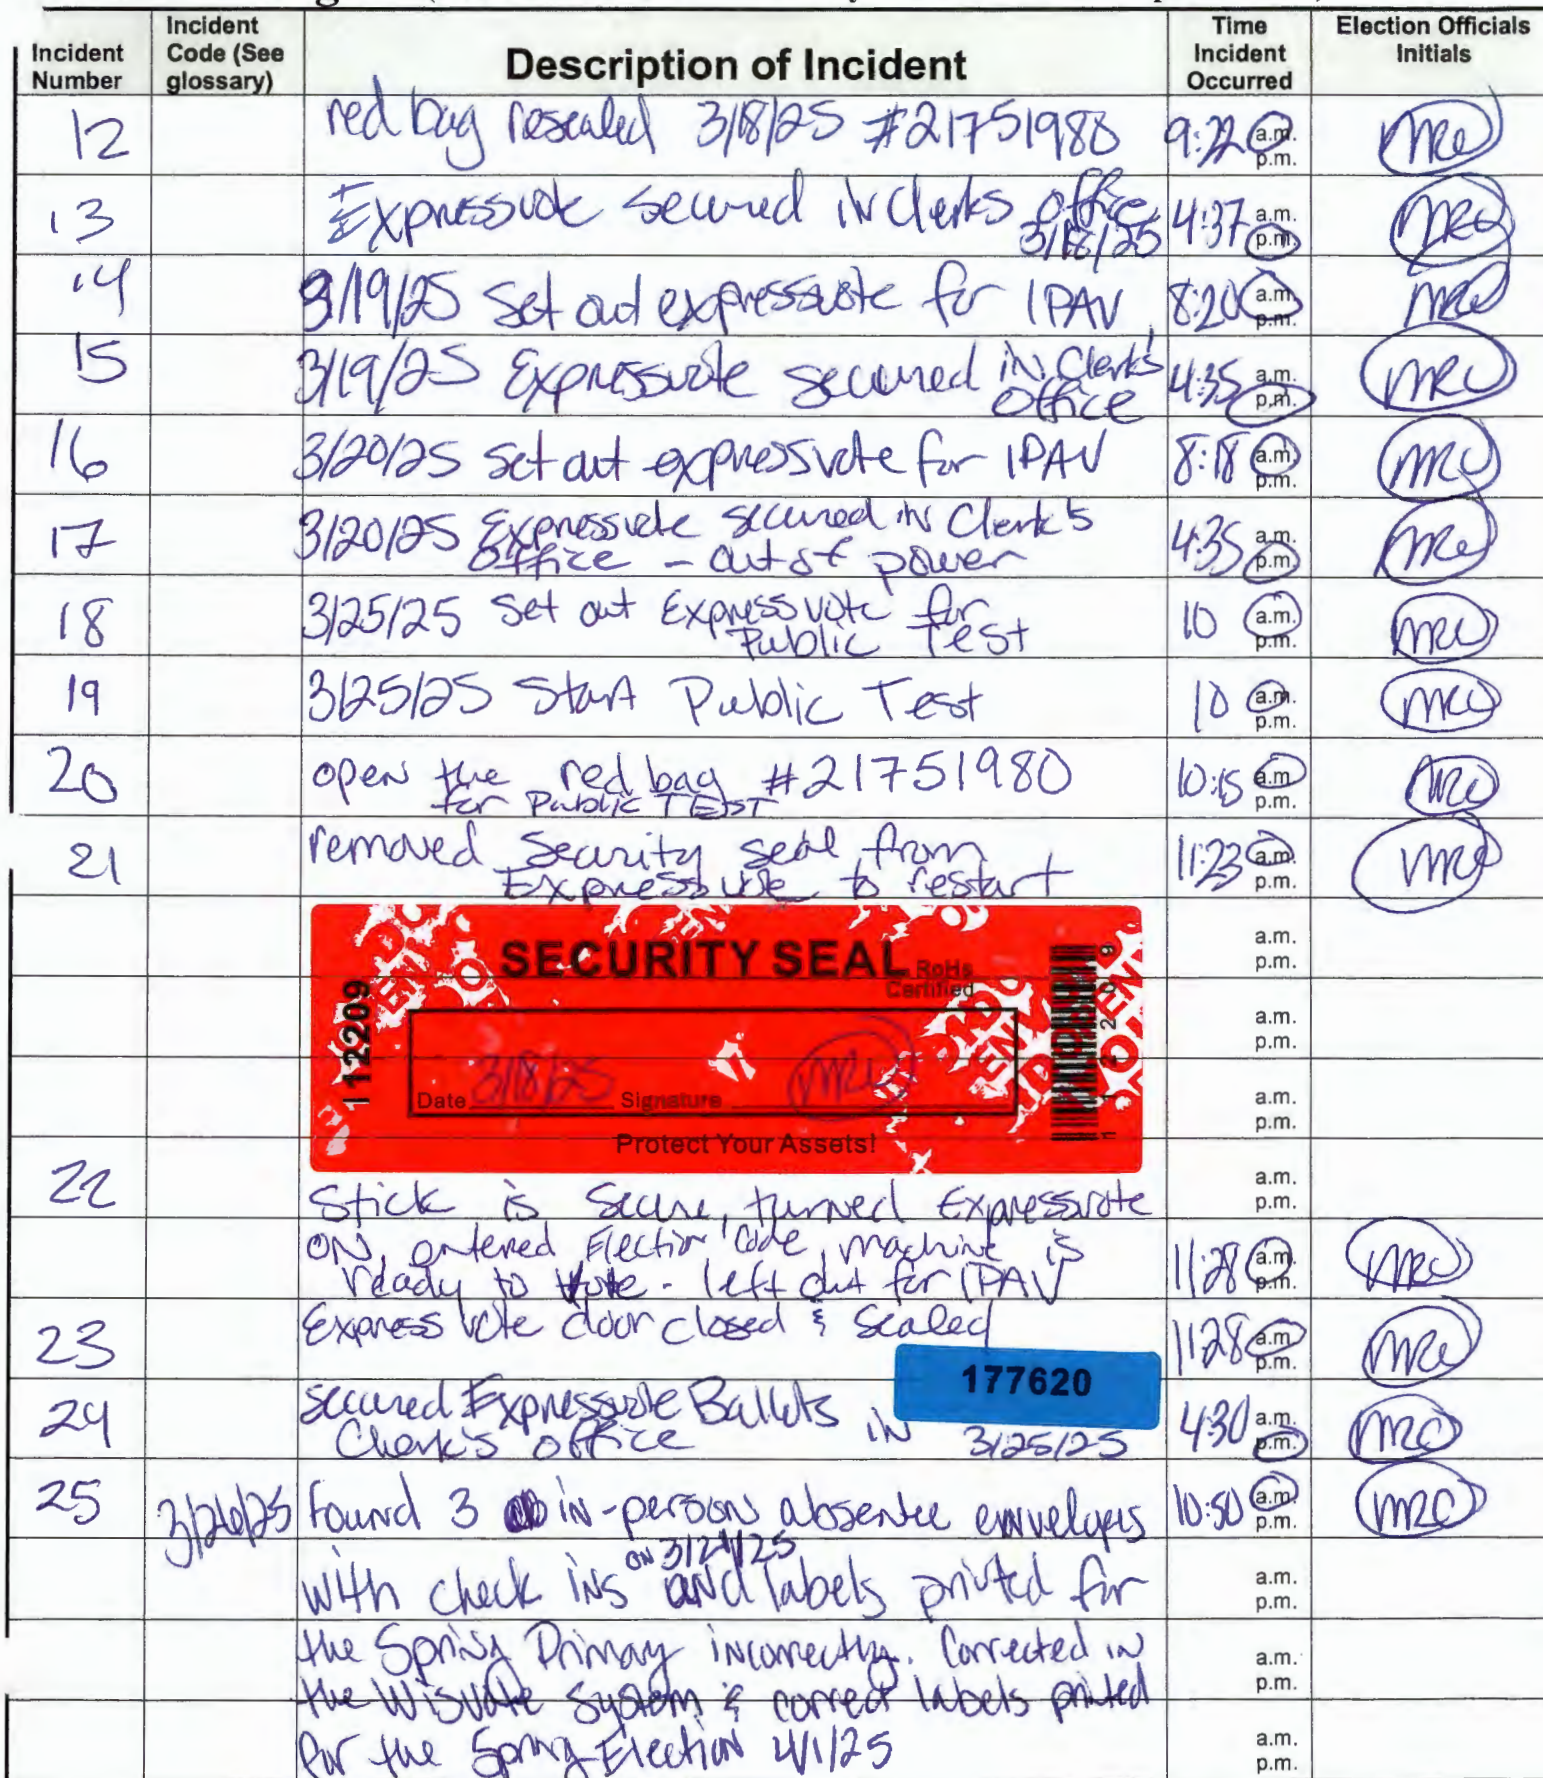 Incident Number
Incident Code (See glossary)
Description of Incident
Time Incident Occurred
Election Officials Initials
12 red bag resealed 3/18/25 #21751988 9:22 a.m. p.m. MRC
13 Expressvote secured in Clerks office 4:37 a.m. p.m. MRC
3/18/25
14 3/19/25 Set out expressvote for IPAV 8:20 a.m. p.m. MRC
15 3/19/25 Expressvote secured in Clerk's 4:35 a.m. p.m. MRC
office
16 3/20/25 set out expressvote for IPAV 8:18 a.m. p.m. MRC
17 3/20/25 Expressvote secured in Clerk's 4:35 a.m. p.m. MRC
Office - out of power
18 3/25/25 Set out Expressvote for 10 a.m. p.m. MRC
Public Test
19 3/25/25 Start Public Test 10 a.m. p.m. MRC
20 open the red bag #21751980 10:15 a.m. p.m. MRC
for Public TEST
21 removed Security seal from 11:23 a.m. p.m. MRC
Expressvote to restart
SECURITY SEAL
RoHs Certified
112209
112209
Date 3/18/25 Signature MRC
Protect Your Assets!
a.m. p.m.
a.m. p.m.
a.m. p.m.
22 a.m. p.m.
Stick is Secure, turned Expressvote
ON, entered Election Code, machine is 11:28 a.m. p.m. MRC
ready to vote - left out for IPAV
23 Express vote door closed & sealed 11:28 a.m. p.m. MRC
177620
24 secured Expressvote Ballots in 4:30 a.m. p.m. MRC
Clerk's office 3/25/25
25 3/26/25 Found 3 in-person absentee envelopes 10:50 a.m. p.m. MRC
on 3/24/25
with check ins and labels printed for a.m. p.m.
the Spring Primary incorrectly. Corrected in a.m. p.m.
the Wisvote System & correct labels printed
for the Spring Election 4/1/25 a.m. p.m.